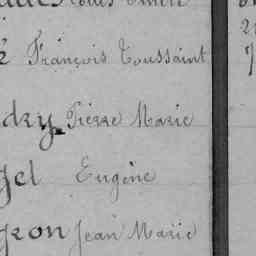 Louis
é François Toussaint
dry Pierre Marie
gel Eugène
gron Jean Marie